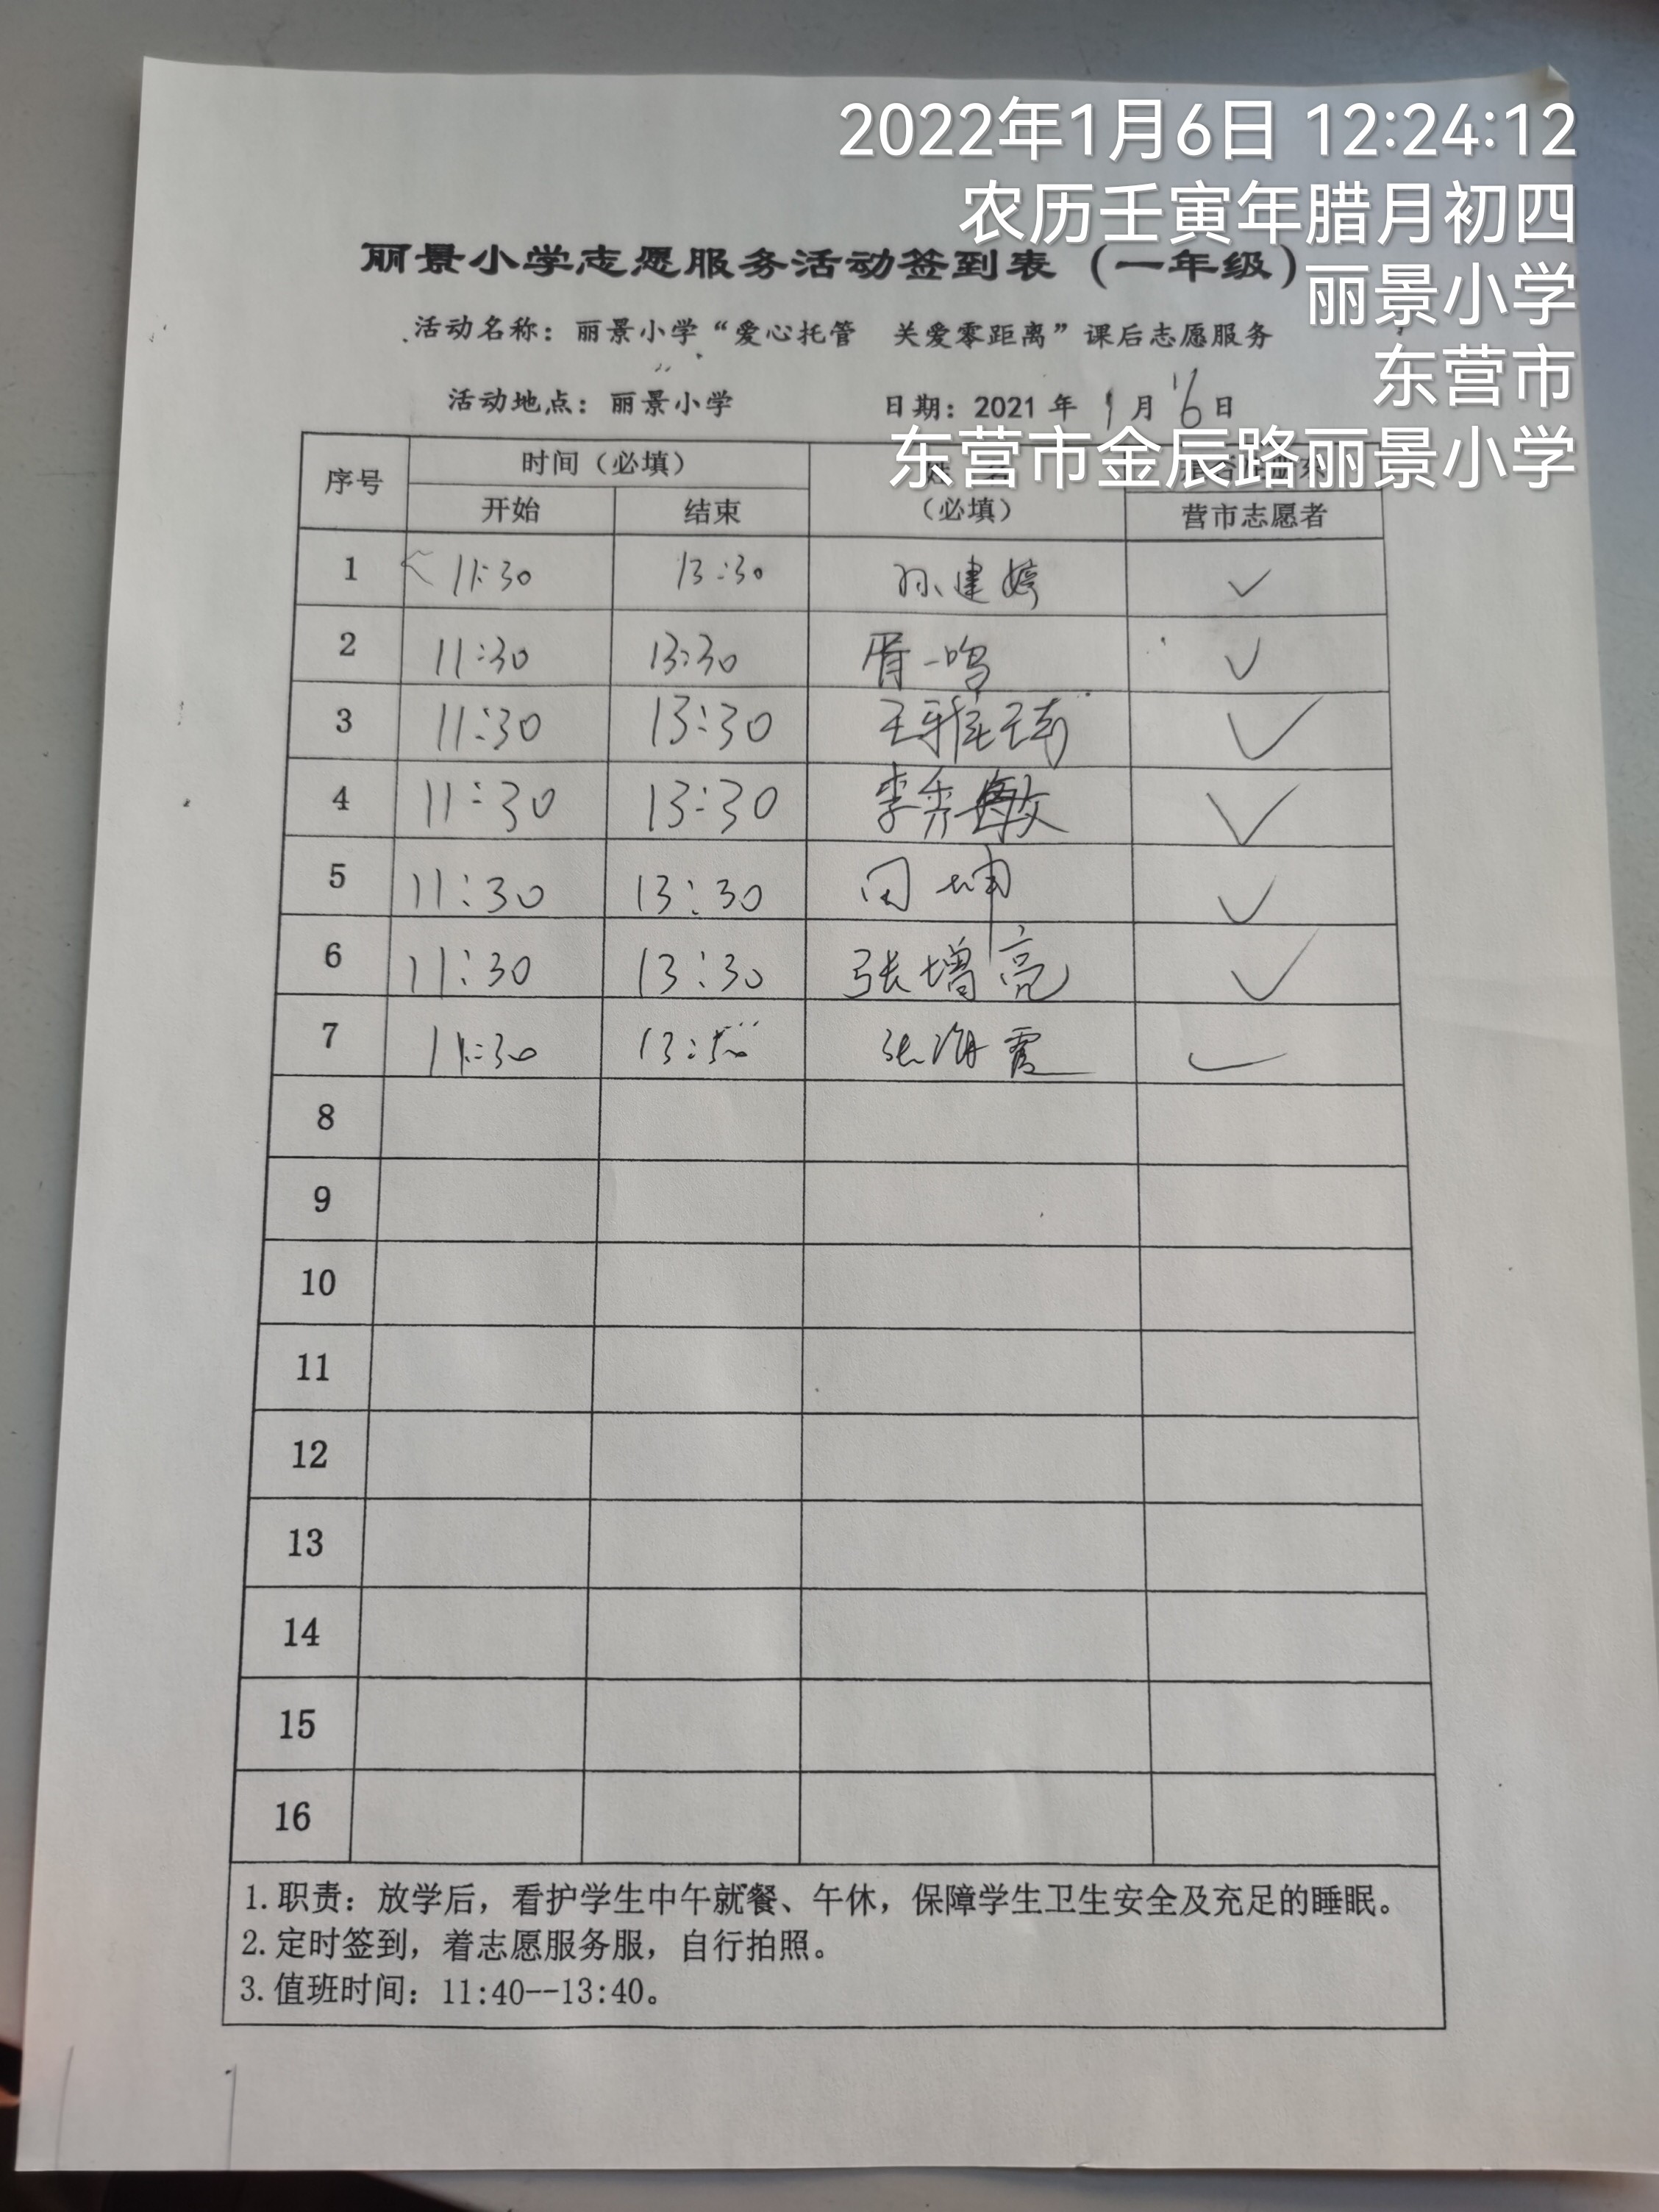 2022年1月6日 12:24:12
农历壬寅年腊月初四
丽景小学
东营市
东营市金辰路丽景小学
丽景小学志愿服务活动签到表（一年级）
活动名称：丽景小学“爱心托管 关爱零距离”课后志愿服务
活动地点：丽景小学 日期：2021 年 1 月 6 日
序号 时间（必填）
开始 结束 （必填） 营市志愿者
1 11:30 13:30 孙建婷 ✓
2 11:30 13:30 胥一鸣 ✓
3 11:30 13:30 王雅 ✓
4 11:30 13:30 李秀敏 ✓
5 11:30 13:30 田坤 ✓
6 11:30 13:30 张增亮 ✓
7 11:30 13: 张海霞 ✓
8
9
10
11
12
13
14
15
16
1.职责：放学后，看护学生中午就餐、午休，保障学生卫生安全及充足的睡眠。
2.定时签到，着志愿服务服，自行拍照。
3.值班时间：11:40--13:40。